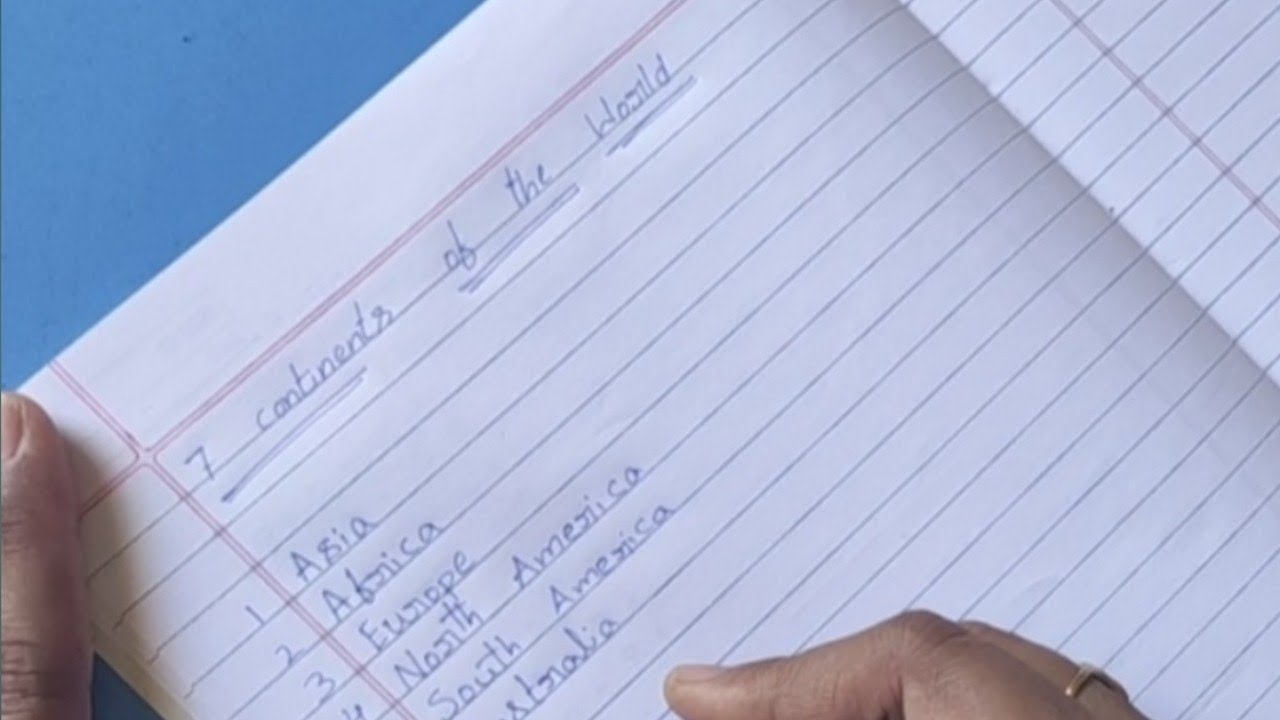 7 continents of the World
1 Asia
2 Africa
3 Europe
4 North America
South America
stralia